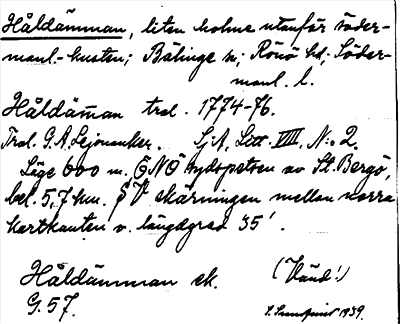 Håldämman, liten holme utanför söder-
manl.-kusten; Bälinge sn; Rönö hd, Söder-
manl. l.
Håldäm̄an trol. 1774-76.
Trol. G.A. Lejonanker. SjA, Lett. VIII, N:o 2.
Läge 600 m. ÖNÖ sydspetsen av St. Bergö,
bel. 5,7 km. SV skärningen mellan norra
kartkanten o. längdgrad 35'.
Håldämman ek. (Vänd!)
G. 57. 1939.